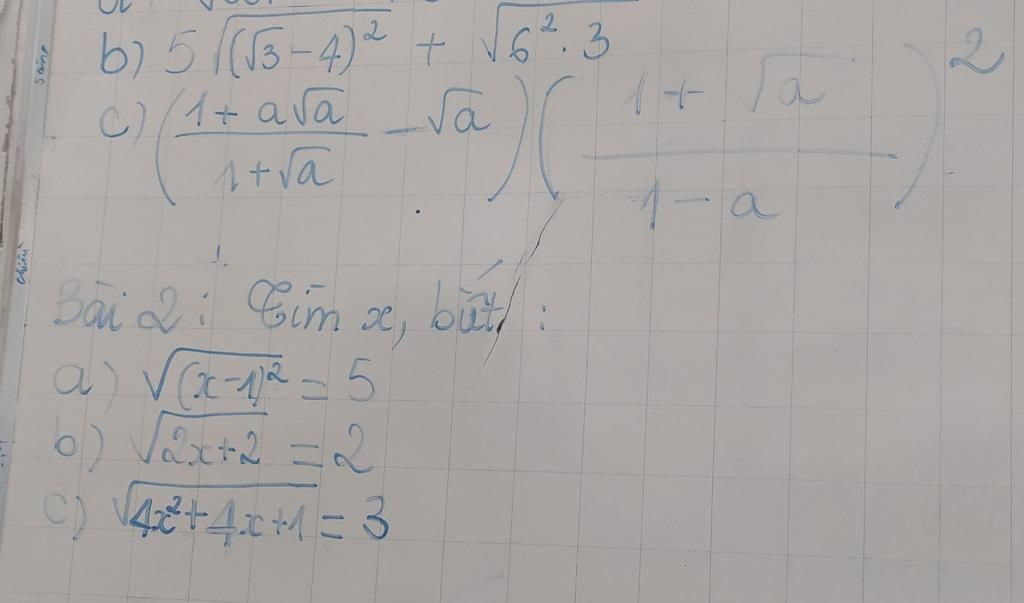 b) 5√((√3 - 4)²) + √(6² . 3)
c) ((1 + a√a)/(1 + √a) - √a) ((1 + √a)/(1 - a))²
Bài 2 : Tìm x, biết :
a) √((x-1)²) = 5
b) √(2x+2) = 2
c) √(4x²+4x+1) = 3